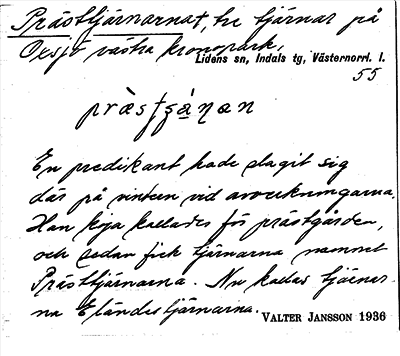 Prästtjärnarna†, tre tjärnar på
Oxsjö västra kronopark,
Lidens sn, Indals tg, Västernorrl. l.
55
En predikant hade slagit sig
där på vintern vid avverkningarna.
Han koja kallades för prästgården,
och sedan fick tjärnarna namnet
Prästtjärnarna. Nu kallas tjärnar-
na Eländestjärnarna.
VALTER JANSSON 1936